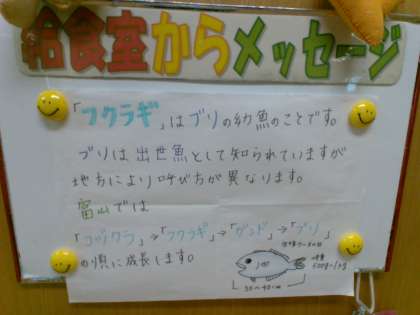 給食室からメッセージ
「フクラギ」はブリの幼魚のことです。
ブリは出世魚として知られていますが
地方により呼び方が異なります。
富山では
「コヅクラ」→「フクラギ」→「ガンド」→「ブリ」
の順に成長します。